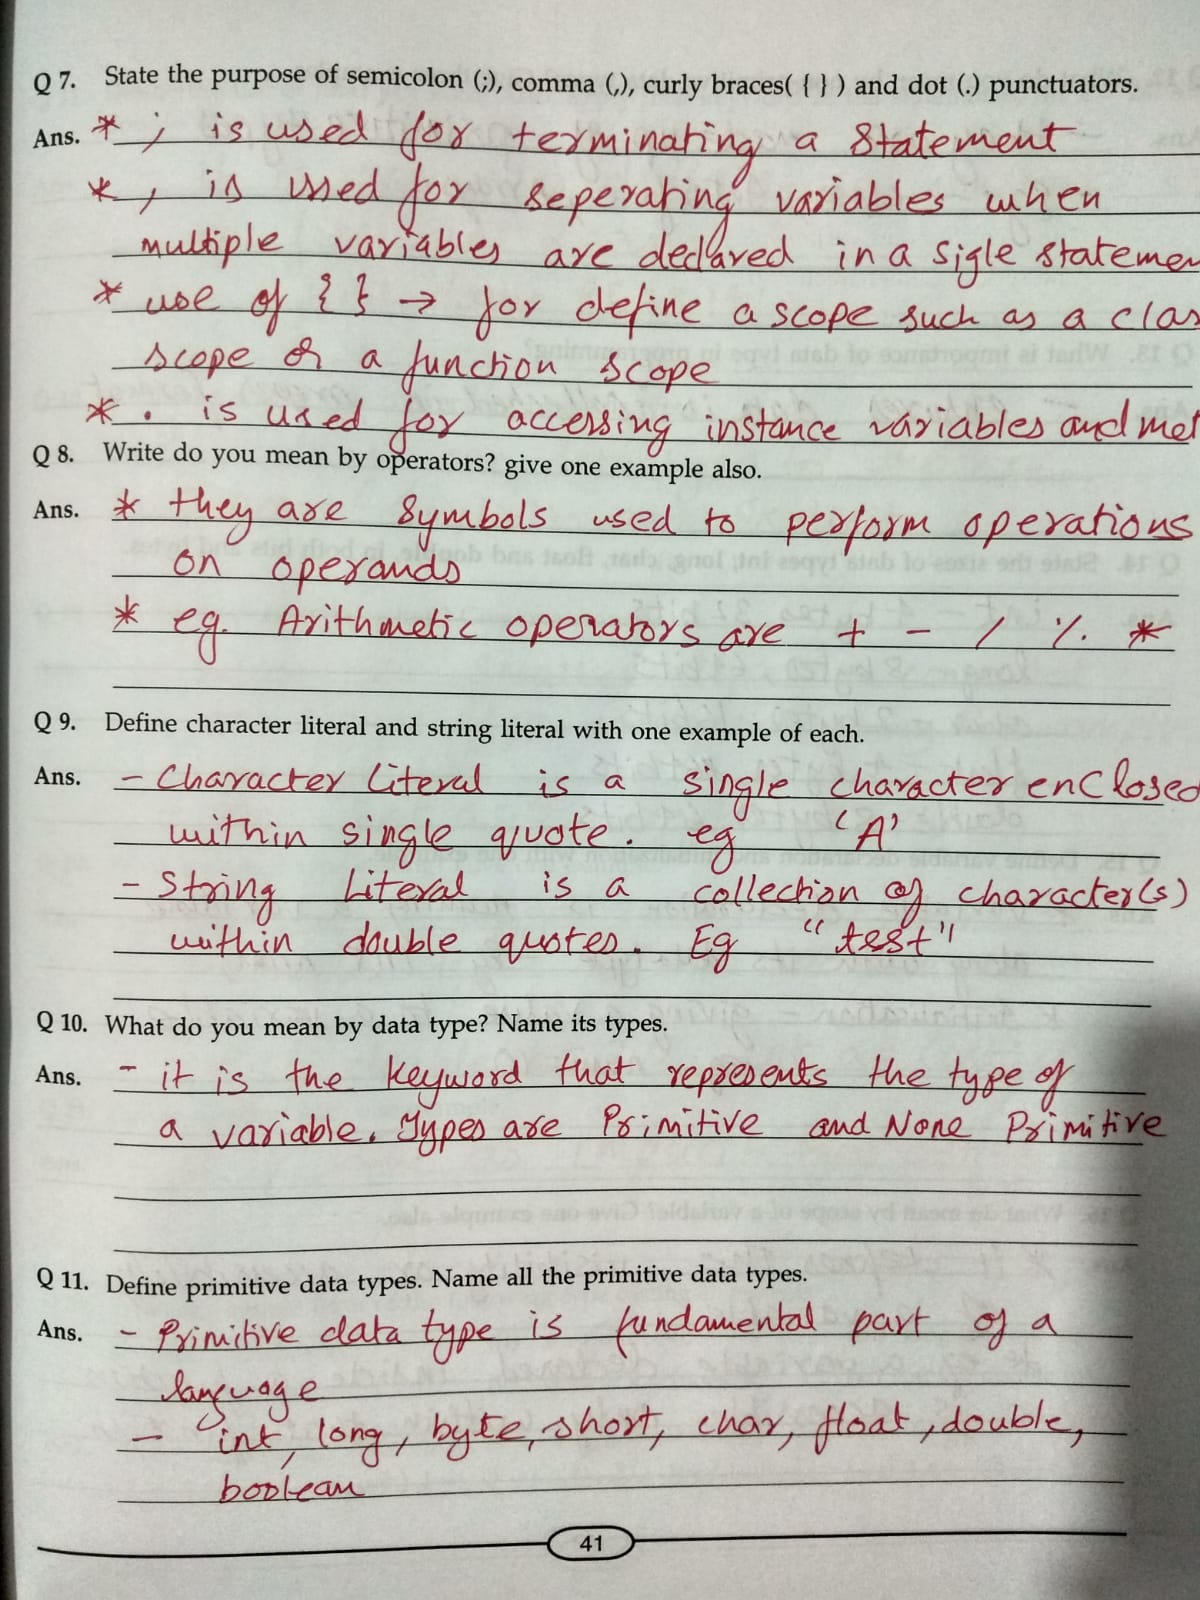 Q 7. State the purpose of semicolon (;), comma (,), curly braces( { } ) and dot (.) punctuators.
Ans. * ; is used for terminating a statement
* , is used for seperating variables when
multiple variables are declared in a sigle statemen
* use of { } → for define a scope such as a clas
scope or a function scope
* . is used for accessing instance variables and met
Q 8. Write do you mean by operators? give one example also.
Ans. * they are symbols used to perform operations
on operands
* eg. Arithmetic operators are + - / % *
Q 9. Define character literal and string literal with one example of each.
Ans. - Character literal is a single character enclosed
within single quote. eg 'A'
- String Literal is a collection of character(s)
within double quotes. Eg "test"
Q 10. What do you mean by data type? Name its types.
Ans. - it is the keyword that represents the type of
a variable. Types are Primitive and None Primitive
Q 11. Define primitive data types. Name all the primitive data types.
Ans. - Primitive data type is fundamental part of a
language
- int, long, byte, short, char, float, double,
boolean
41